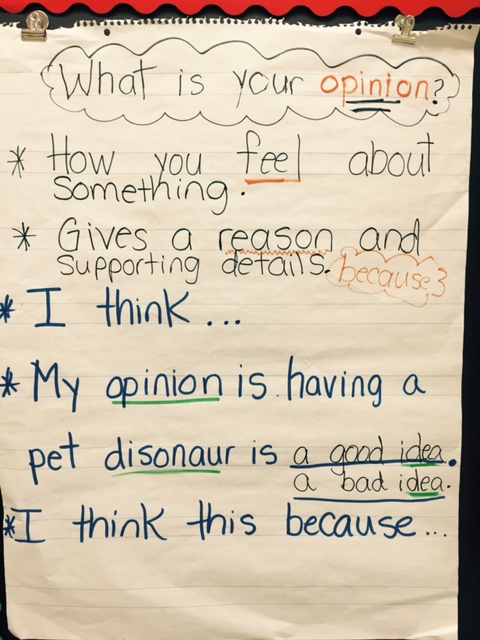 What is your opinion?
* How you feel about
something.
* Gives a reason and
supporting details. because
* I think...
* My opinion is having a
pet disonaur is a good idea.
a bad idea.
* I think this because...